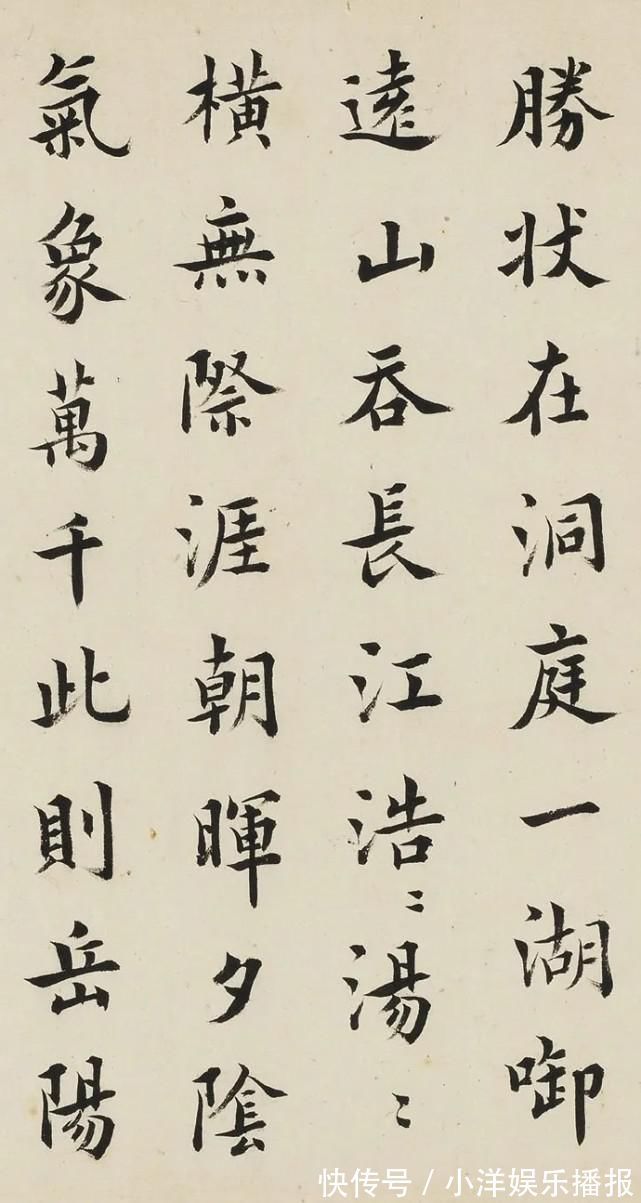 勝状在洞庭一湖啣
遠山吞長江浩〻湯〻
橫無際涯朝暉夕陰
氣象萬千此則岳陽
快传号/小洋娱乐播报